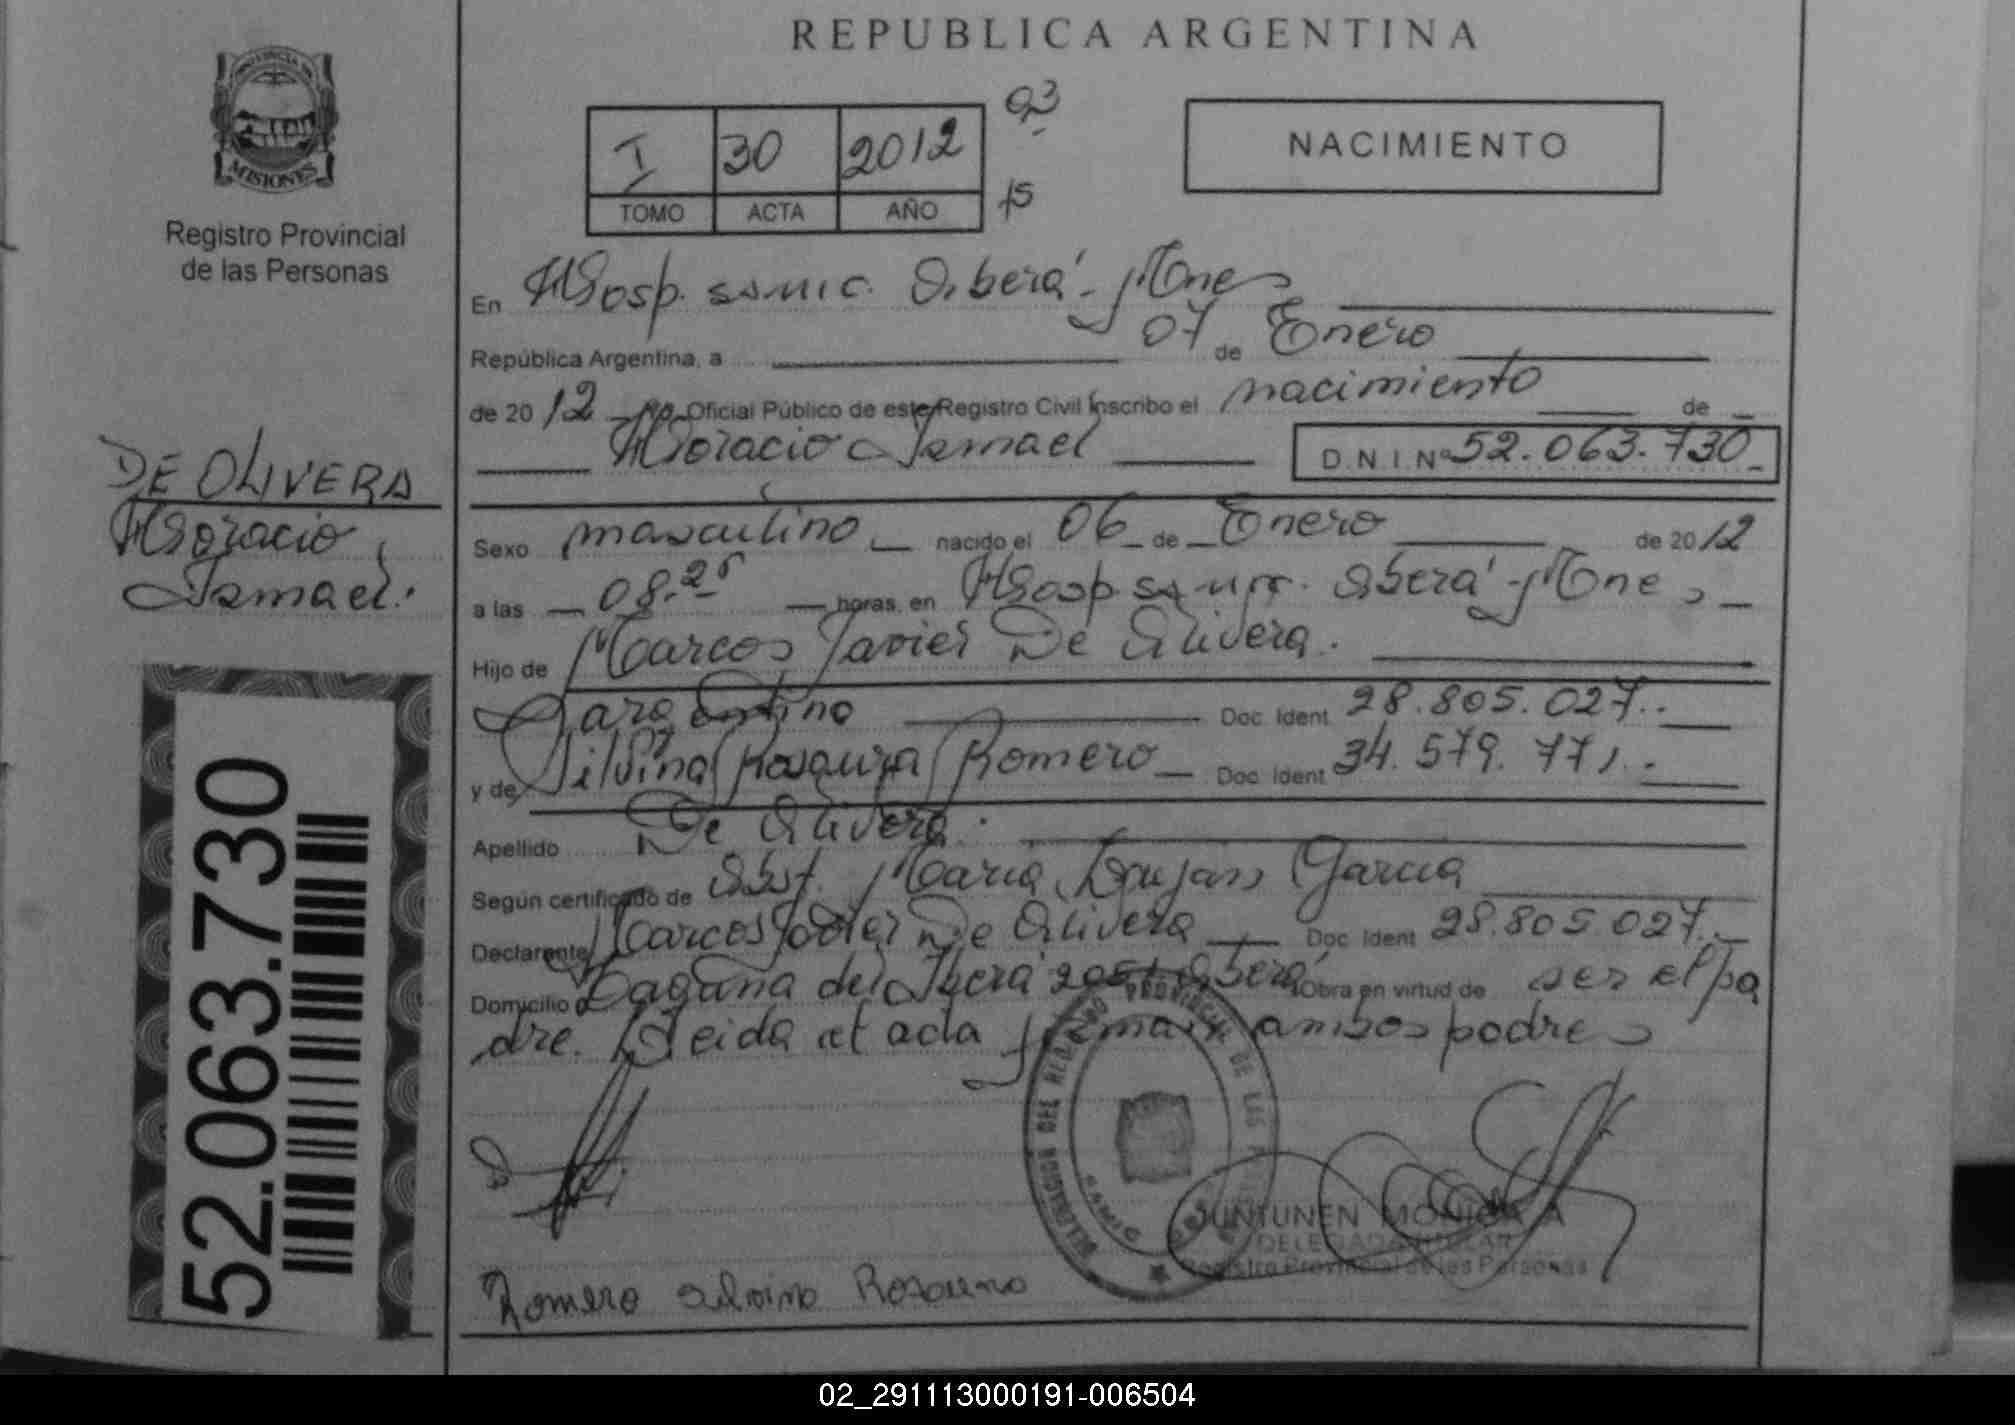 REPUBLICA ARGENTINA
PROVINCIA DE
MISIONES
Registro Provincial
de las Personas
I 30 2012
TOMO ACTA AÑO
03
15
NACIMIENTO
En Hosp. samic. Oberá - Mnes
República Argentina, a 07 de Enero
de 20 12 yo Oficial Público de este Registro Civil Inscribo el nacimiento de
Horacio Ismael D.N.I.Nº 52.063.730
DE OLIVERA
Horacio
Ismael.
Sexo masculino nacido el 06 de Enero de 20 12
a las 08.25 horas, en Hosp. samic. Oberá - Mnes
Hijo de Marcos Javier De Olivera.
Argentino Doc. Ident. 28.805.027.
y de Silvina Rosaura Romero Doc. Ident. 34.579.771.
Apellido De Olivera.
Según certificado de Obst. Maria Lujan Garcia
Declarante Marcos Javier De Olivera Doc. Ident. 28.805.027.
Domicilio Laguna del Iberá Oberá Obra en virtud de ser el pa
dre. Leida el acta firman ambos padres
DELEGACION DEL REGISTRO PROVINCIAL DE LAS
JUNTUNEN MONICA A
DELEGADA TITULAR
Registro Provincial de las Personas
Romero Silvina Rosaura
52.063.730
02_291113000191-006504